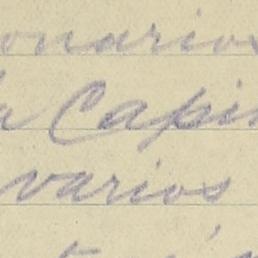 onarios
a Capi
varios